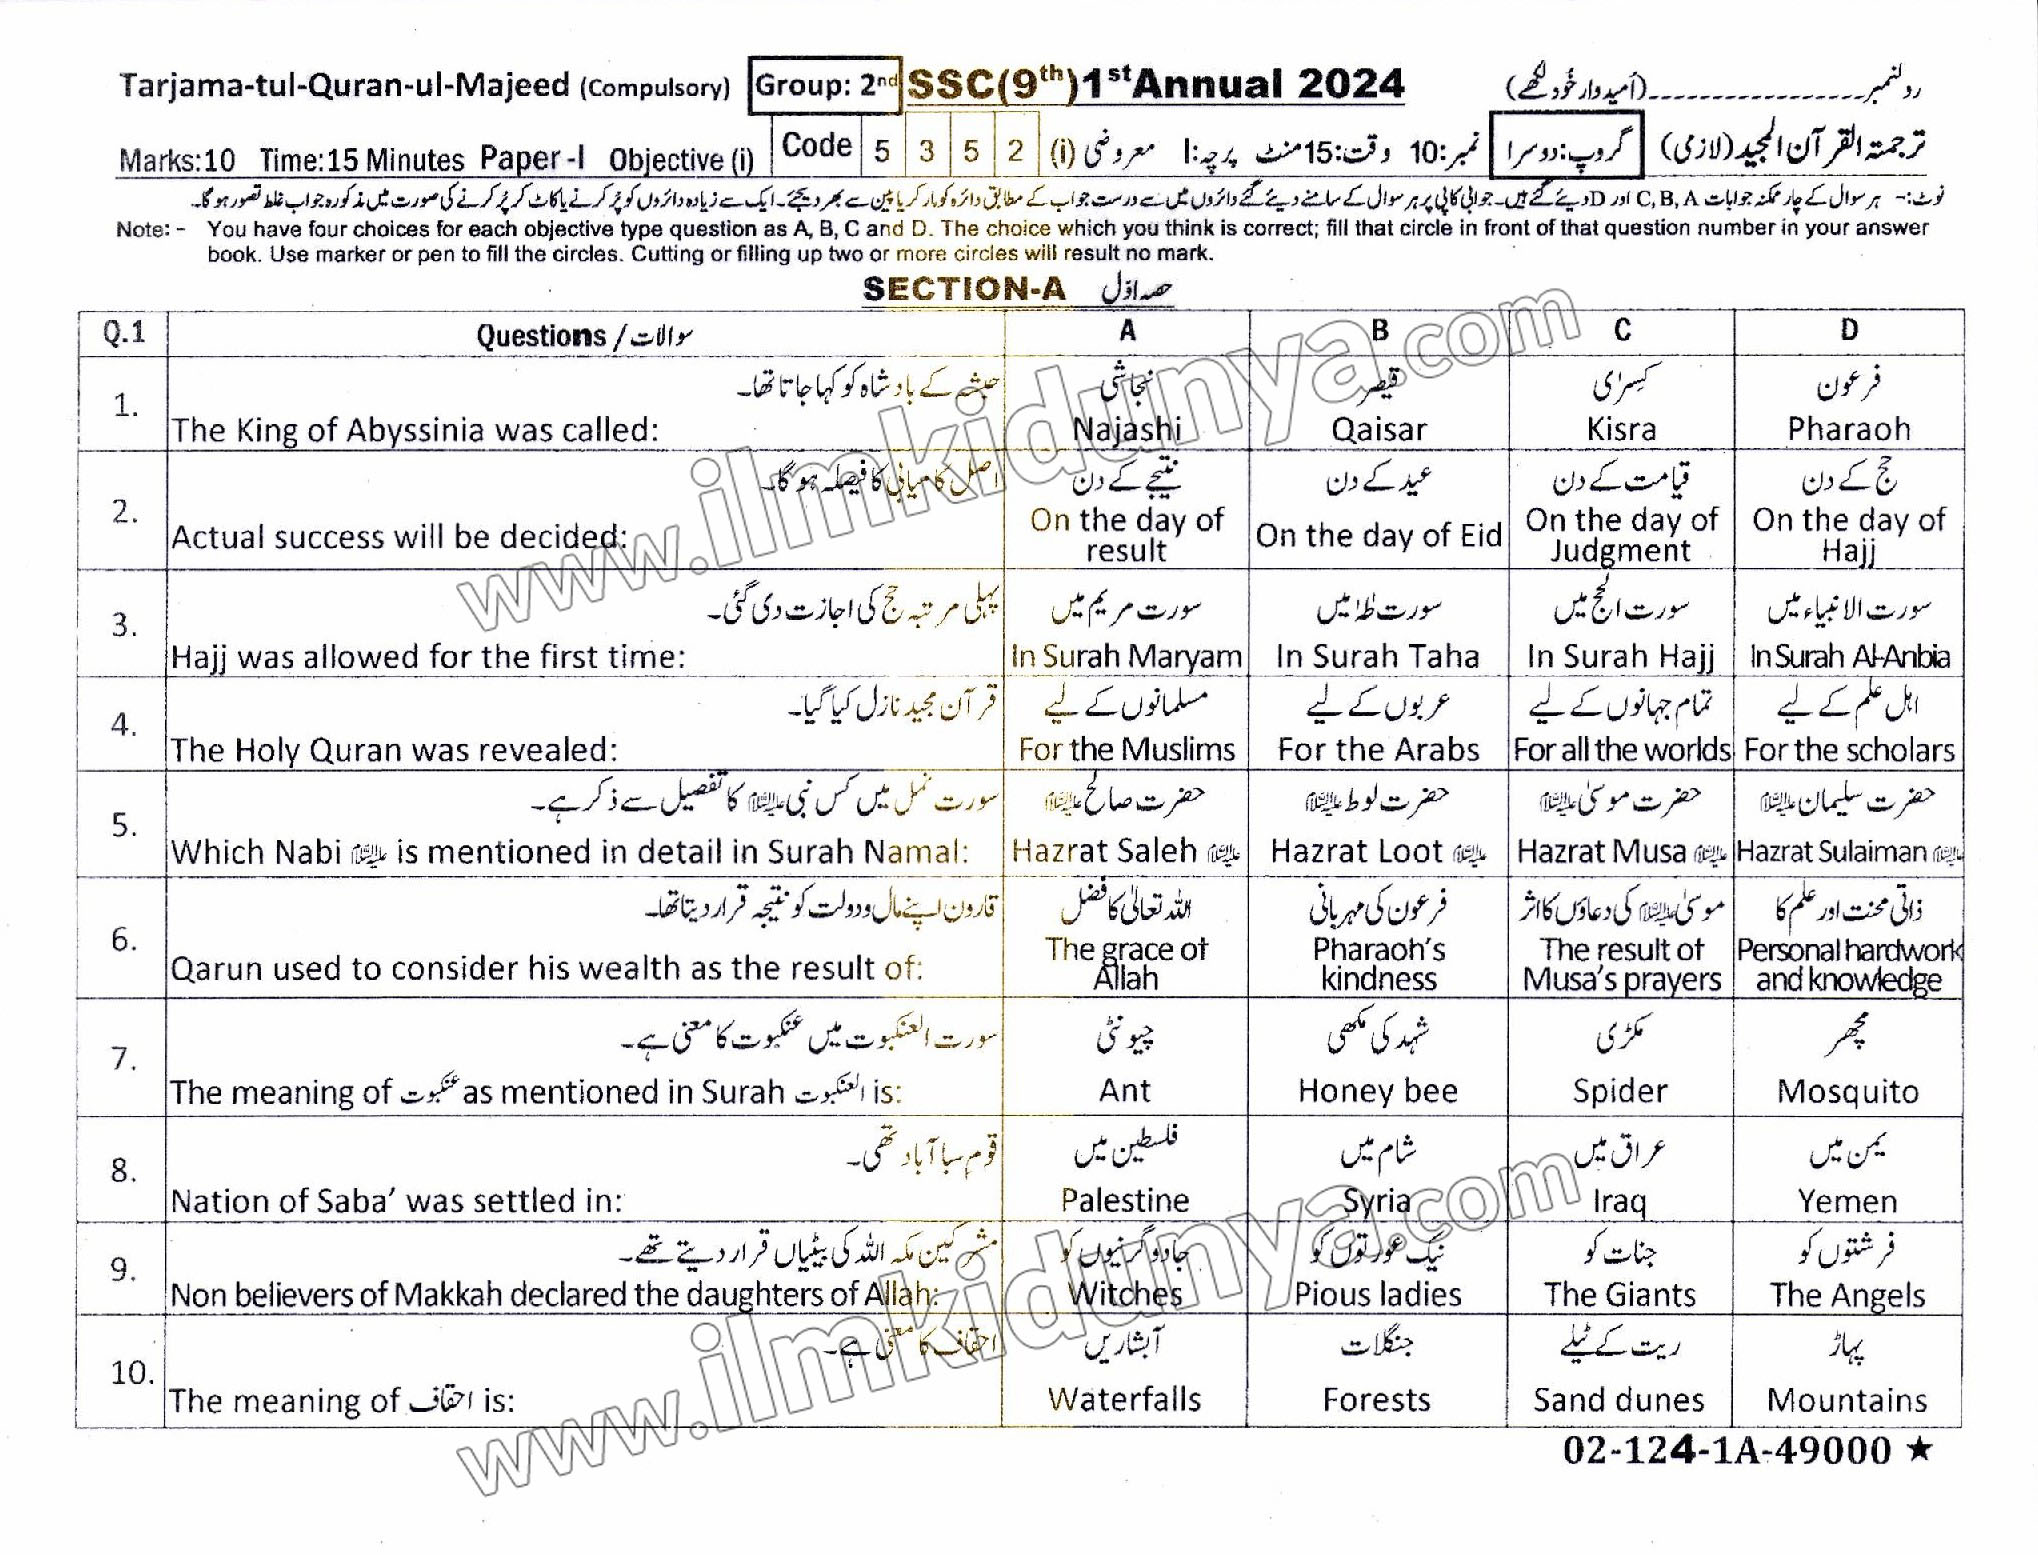 Tarjama-tul-Quran-ul-Majeed (Compulsory) Group: 2nd SSC(9th)1stAnnual 2024 رولنمبر------------------(اُمیدوار خُود لکھے)
Marks:10 Time:15 Minutes Paper-I Objective (i) Code 5 3 5 2 (i) معروضی پرچہ:I وقت:15منٹ نمبر:10 گروپ:دوسرا ترجمۃ القرآن المجید(لازمی)
نوٹ:- ہر سوال کے چار ممکنہ جوابات C,B,A اور D دیئے گئے ہیں۔ جوابی کاپی پر ہر سوال کے سامنے دیئے گئے دائروں میں سے درست جواب کے مطابق دائرہ کو مارکر یا پین سے بھر دیجئے۔ ایک سے زیادہ دائروں کو پُر کرنے یا کاٹ کر پُر کرنے کی صورت میں مذکورہ جواب غلط تصور ہو گا۔
Note: - You have four choices for each objective type question as A, B, C and D. The choice which you think is correct; fill that circle in front of that question number in your answer
book. Use marker or pen to fill the circles. Cutting or filling up two or more circles will result no mark.
SECTION-A حصہ اوّل
Q.1 Questions / سوالات A B C D
1. حبشہ کے بادشاہ کو کہا جاتا تھا۔ نجاشی قیصر کِسرٰی فرعون
The King of Abyssinia was called: Najashi Qaisar Kisra Pharaoh
2. اصل کامیابی کا فیصلہ ہو گا۔ نتیجے کے دن عید کے دن قیامت کے دن حج کے دن
Actual success will be decided: On the day of result On the day of Eid On the day of Judgment On the day of Hajj
3. پہلی مرتبہ حج کی اجازت دی گئی۔ سورت مریم میں سورت طٰہٰ میں سورت الحج میں سورت الانبیاء میں
Hajj was allowed for the first time: In Surah Maryam In Surah Taha In Surah Hajj In Surah Al-Anbia
4. قرآن مجید نازل کیا گیا۔ مسلمانوں کے لیے عربوں کے لیے تمام جہانوں کے لیے اہل علم کے لیے
The Holy Quran was revealed: For the Muslims For the Arabs For all the worlds For the scholars
5. سورت نمل میں کس نبی علیہ السلام کا تفصیل سے ذکر ہے۔ حضرت صالح علیہ السلام حضرت لوط علیہ السلام حضرت موسیٰ علیہ السلام حضرت سلیمان علیہ السلام
Which Nabi علیہ السلام is mentioned in detail in Surah Namal: Hazrat Saleh علیہ السلام Hazrat Loot علیہ السلام Hazrat Musa علیہ السلام Hazrat Sulaiman علیہ السلام
6. قارون اپنے مال و دولت کو نتیجہ قرار دیتا تھا۔ اللہ تعالیٰ کا فضل فرعون کی مہربانی موسیٰ علیہ السلام کی دعاؤں کا اثر ذاتی محنت اور علم کا
Qarun used to consider his wealth as the result of: The grace of Allah Pharaoh's kindness The result of Musa's prayers Personal hardwork and knowledge
7. سورت العنکبوت میں عنکبوت کا معنیٰ ہے۔ چیونٹی شہد کی مکھی مکڑی مچھر
The meaning of عنکبوت as mentioned in Surah العنکبوت is: Ant Honey bee Spider Mosquito
8. قوم سبا آباد تھی۔ فلسطین میں شام میں عراق میں یمن میں
Nation of Saba' was settled in: Palestine Syria Iraq Yemen
9. مشرکین مکہ اللہ کی بیٹیاں قرار دیتے تھے۔ جادوگرنیوں کو نیک عورتوں کو جنات کو فرشتوں کو
Non believers of Makkah declared the daughters of Allah: Witches Pious ladies The Giants The Angels
10. احقاف کا معنی ہے۔ آبشاریں جنگلات ریت کے ٹیلے پہاڑ
The meaning of احقاف is: Waterfalls Forests Sand dunes Mountains
02-124-1A-49000 ★
www.ilmkidunya.com
www.ilmkidunya.com